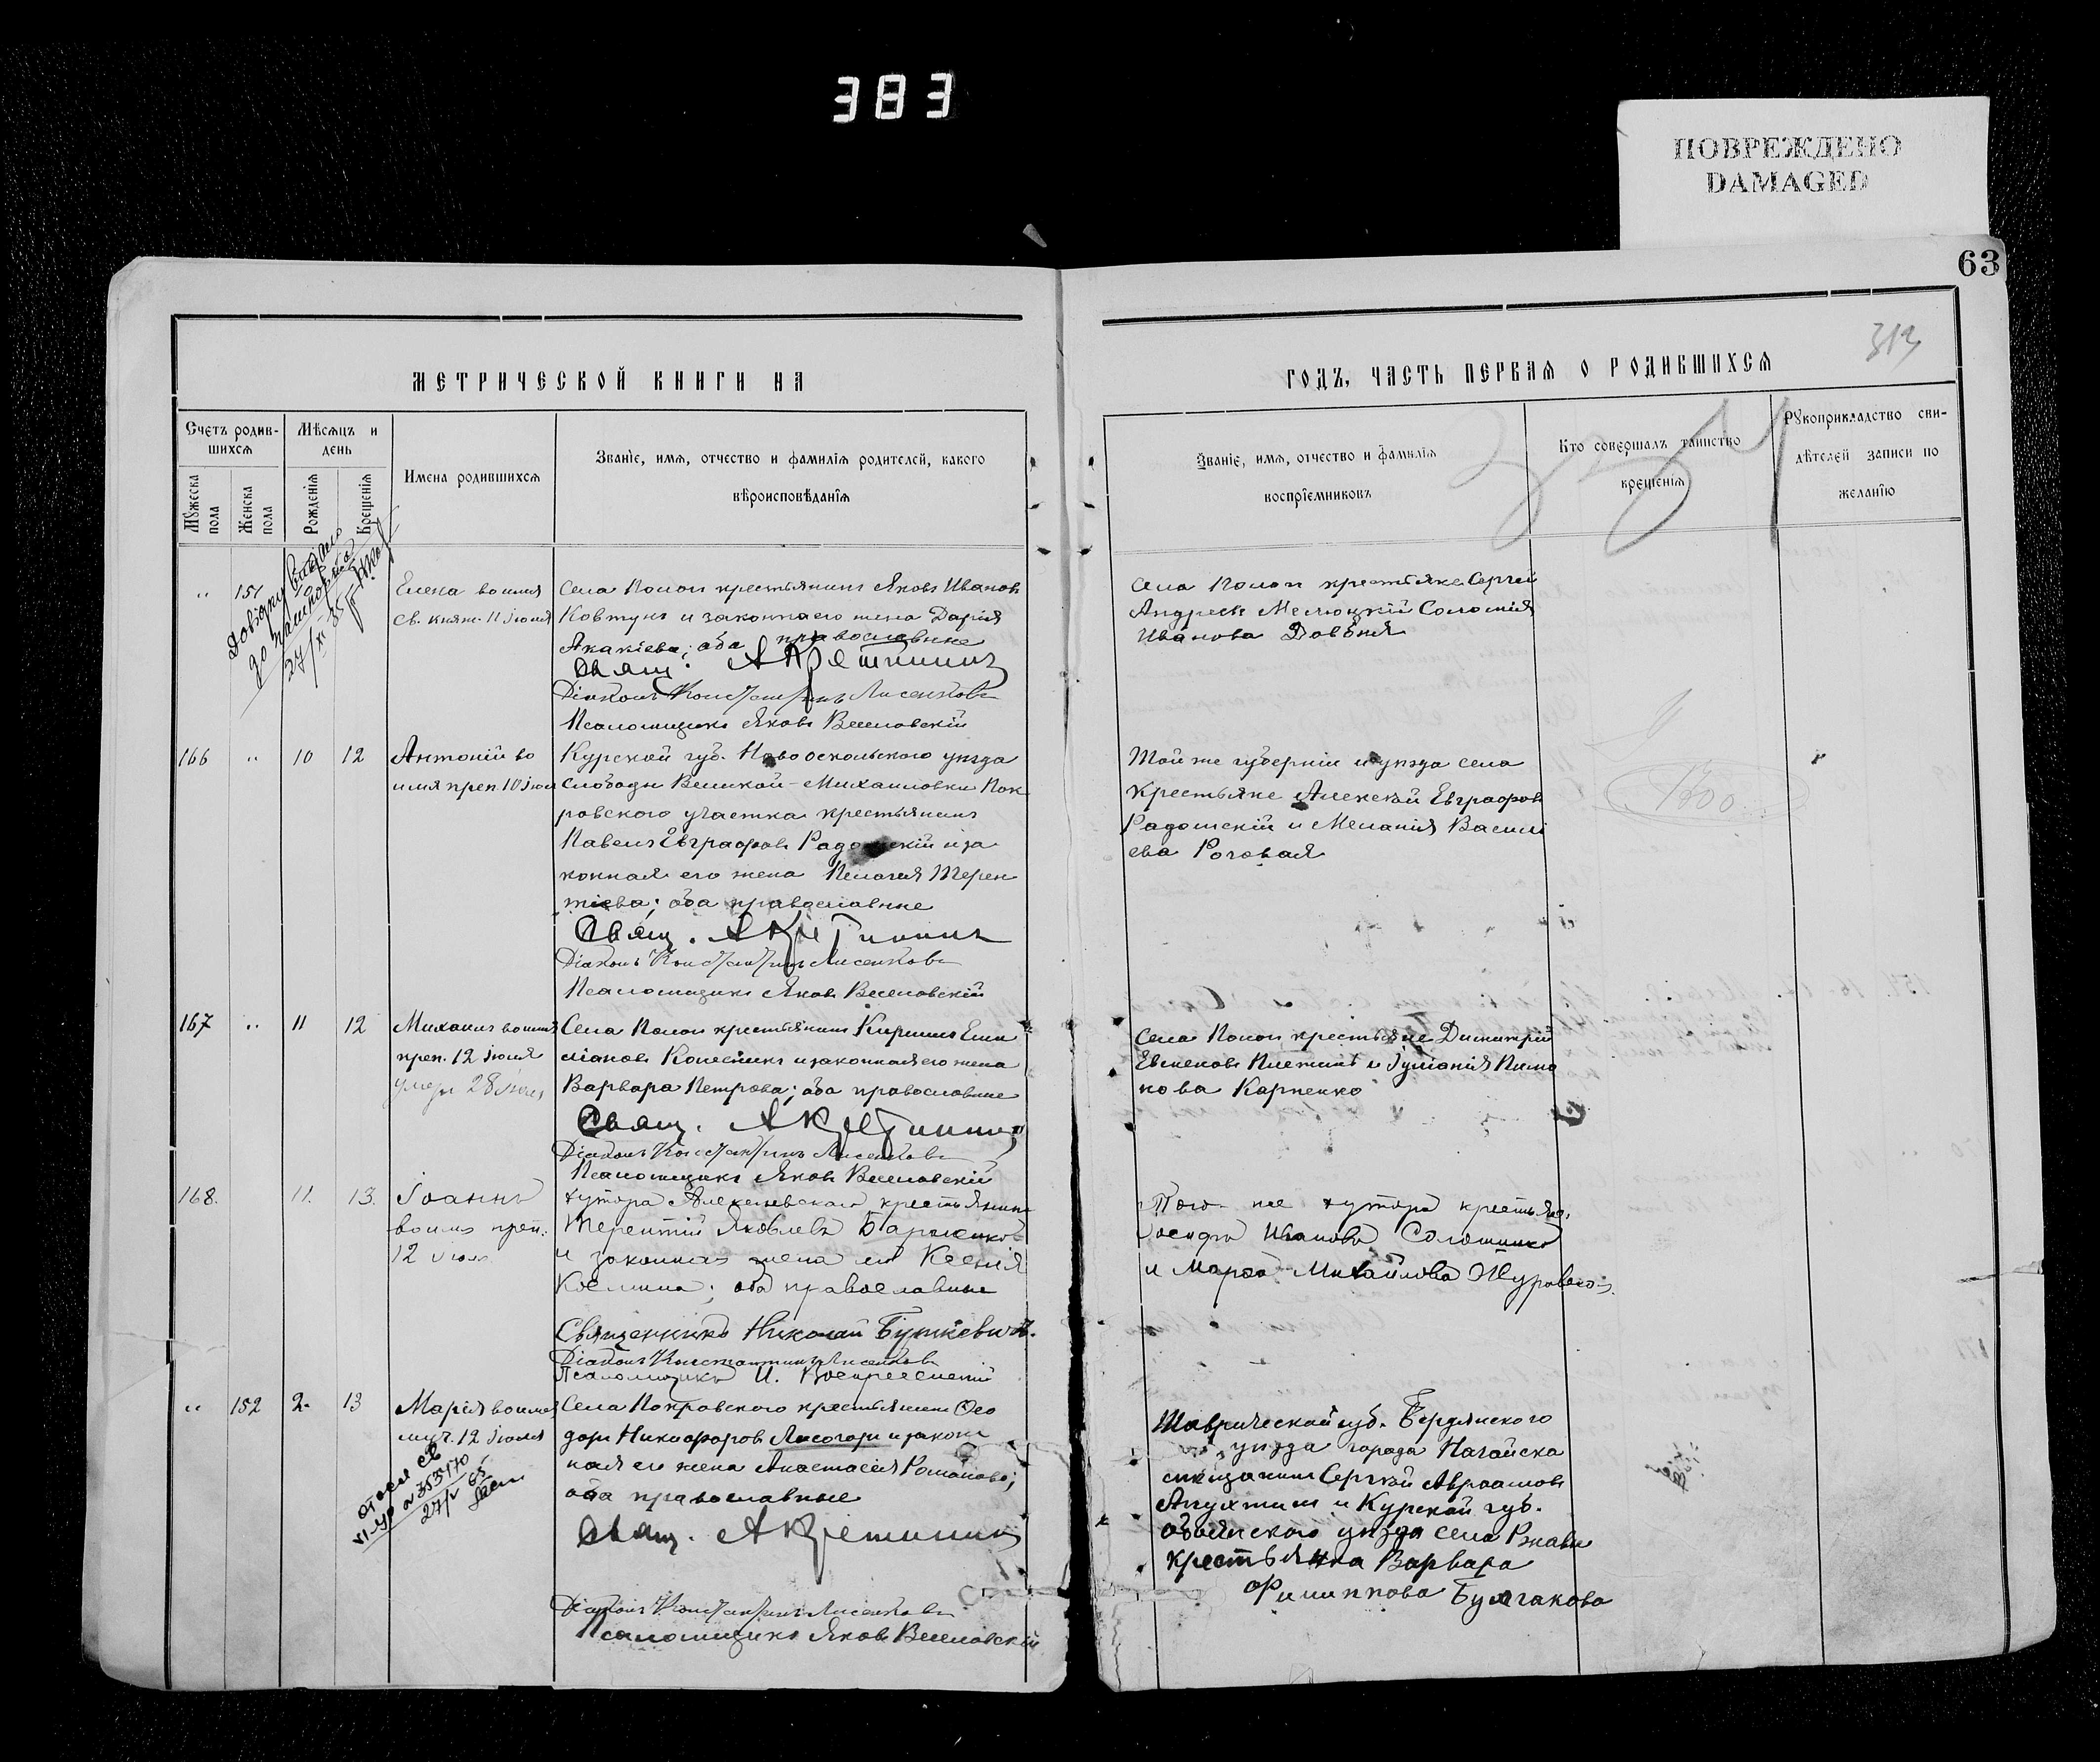 383
ПОВРЕЖДЕНО
DAMAGED
63
313
МЕТРИЧЕСКОЙ КНИГИ НА
ГОДЪ, ЧАСТЬ ПЕРВАЯ О РОДИВШИХСЯ
Счетъ родив-
шихся
Мѣсяцъ и
день
Мужеска
пола
Женска
пола
Рожденія
Крещенія
Имена родившихся
Званіе, имя, отчество и фамилія родителей, какого
вѣроисповѣданія
Званіе, имя, отчество и фамилія
воспріемниковъ
Кто совершалъ таинство
крещенія
Рукоприкладство сви-
дѣтелей записи по
желанію
„ 151
Елена во имя
св. княг. 11 іюля
Села Пологи крестьянинъ Яковъ Ивановъ
Ковтунъ и законная его жена Дарія
Акакіева; оба православные
Свящ. А Кретининъ
Діаконъ Константинъ Лисенковъ
Псаломщикъ Яковъ Веселовскій
Села Пологи крестьяне Сергей
Андреевъ и Соломія
Иванова
166 „ 10 12
Антоній во
имя преп. 10 іюл
Курской губ. Новооскольскаго уѣзда
слободы Великой-Михаиловки Пок
ровскаго участка крестьянинъ
Павелъ Евграфовъ Радомскій и за
конная его жена Пелагея Терен
тіева; оба православные
Свящ. А Кретининъ
Діаконъ Константинъ Лисенковъ
Псаломщикъ Яковъ Веселовскій
Той же губерніи и уѣзда села
крестьяне Алексѣй Евграфовъ
Радомскій и Меланія Васил
ева Роговая
1300
167 „ 11 12
Михаилъ во имя
преп. 12 іюля
умеръ 28 іюля
Села Пологи крестьянинъ Кириллъ Еми
ліановъ Колесникъ и законная его жена
Варвара Петрова; оба православные
Свящ. А Кретининъ
Діаконъ Константинъ Лисенковъ
Псаломщикъ Яковъ Веселовскій
Села Пологи крестьяне Димитрій
Евменовъ и Іуліанія Пимо
нова Карпенко
168. 11. 13.
Іоаннъ
во имя преп.
12 іюля
хутора Алексѣевскаго крестьянинъ
Терентій Яковлевъ
и законная жена его Ксенія
Космина; оба православные
Священникъ Николай Буткевичъ.
Діаконъ Константинъ Лисенковъ
Псаломщикъ И. Воскресенскій
Того же хутора крестьяне,
Іосифъ Ивановъ
и Марѳа Михайлова
„ 152 2. 13
Марія во имя
муч. 12 іюля
27/V 65
Села Покровскаго крестьянинъ Ѳео
доръ Никифоровъ Лисогоръ и закон
ная его жена Анастасія Романова;
оба православные
Свящ. А Кретининъ
Діаконъ Константинъ Лисенковъ
Псаломщикъ Яковъ Веселовскій
Таврической губ. Бердянскаго
уѣзда города Нагайска
мѣщанинъ Сергѣй Авраамовъ
Апухтинъ и Курской губ.
обоянскаго уѣзда села Ржавы
крестьянка Варвара
Филиппова Булгакова